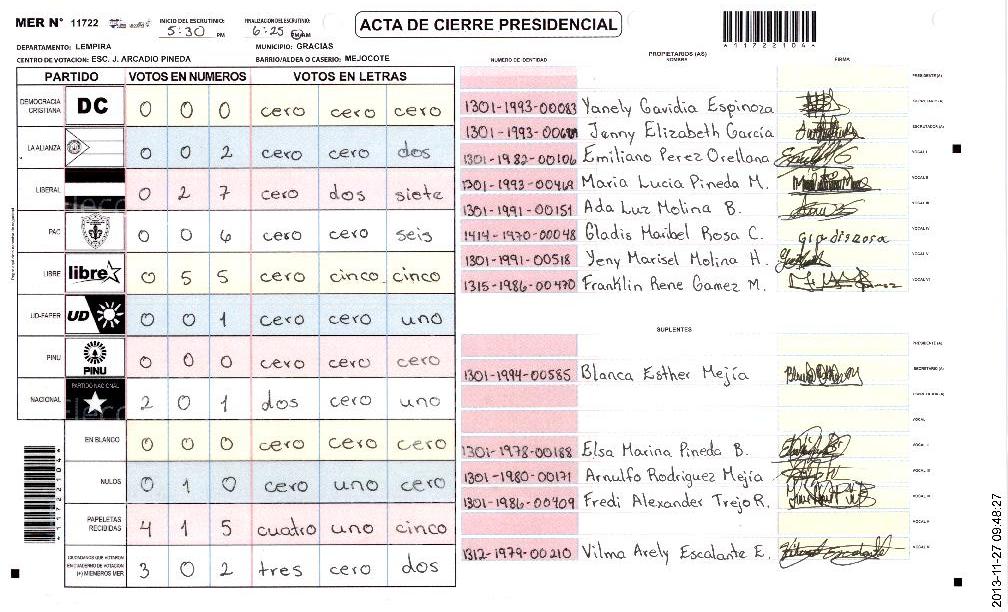 MER N° 11722
INICIO DEL ESCRUTINIO:
5:30 PM
FINALIZACION DEL ESCRUTINIO:
6:25 PM AM
ACTA DE CIERRE PRESIDENCIAL
DEPARTAMENTO: LEMPIRA
MUNICIPIO: GRACIAS
CENTRO DE VOTACION: ESC. J. ARCADIO PINEDA
BARRIO/ALDEA O CASERIO: MEJOCOTE
PARTIDO VOTOS EN NUMEROS VOTOS EN LETRAS
DEMOCRACIA CRISTIANA DC 0 0 0 cero cero cero
LA ALIANZA 0 0 2 cero cero dos
LIBERAL 0 2 7 cero dos siete
PAC 0 0 6 cero cero seis
LIBRE libre 0 5 5 cero cinco cinco
UD-FAPER UD 0 0 1 cero cero uno
PINU PINU 0 0 0 cero cero cero
NACIONAL PARTIDO NACIONAL 2 0 1 dos cero uno
EN BLANCO 0 0 0 cero cero cero
NULOS 0 1 0 cero uno cero
PAPELETAS RECIBIDAS 4 1 5 cuatro uno cinco
CIUDADANOS QUE VOTARON EN CUADERNO DE VOTACION (+) MIEMBROS MER 3 0 2 tres cero dos
PROPIETARIOS (AS)
NUMERO DE IDENTIDAD NOMBRE FIRMA
PRESIDENTE (A)
1301-1993-00083 Yanely Gavidia Espinoza SECRETARIO (A)
1301-1993-Jenny Elizabeth García ESCRUTADOR (A)
1301-1982-00106 Emiliano Perez Orellana VOCAL I
1301-1993-00469 Maria Lucia Pineda M. VOCAL II
1301-1991-00151 Ada Luz Molina B. VOCAL III
1414-1970-00048 Gladis Maribel Rosa C. VOCAL IV
1301-1991-00518 Yeny Marisel Molina H. VOCAL V
1315-1986-00470 Franklin Rene Gamez M. VOCAL VI
SUPLENTES
PRESIDENTE (A)
1301-1994-00585 Blanca Esther Mejía SECRETARIO (A)
ESCRUTADOR (A)
VOCAL I
1301-1978-00188 Elsa Marina Pineda B. VOCAL II
1301-1980-00171 Arnulfo Rodriguez Mejía VOCAL III
1301-1986-00409 Fredi Alexander Trejo R. VOCAL IV
VOCAL V
1312-1979-00210 Vilma Arely Escalante E. VOCAL VI
2013-11-27 09:48:27